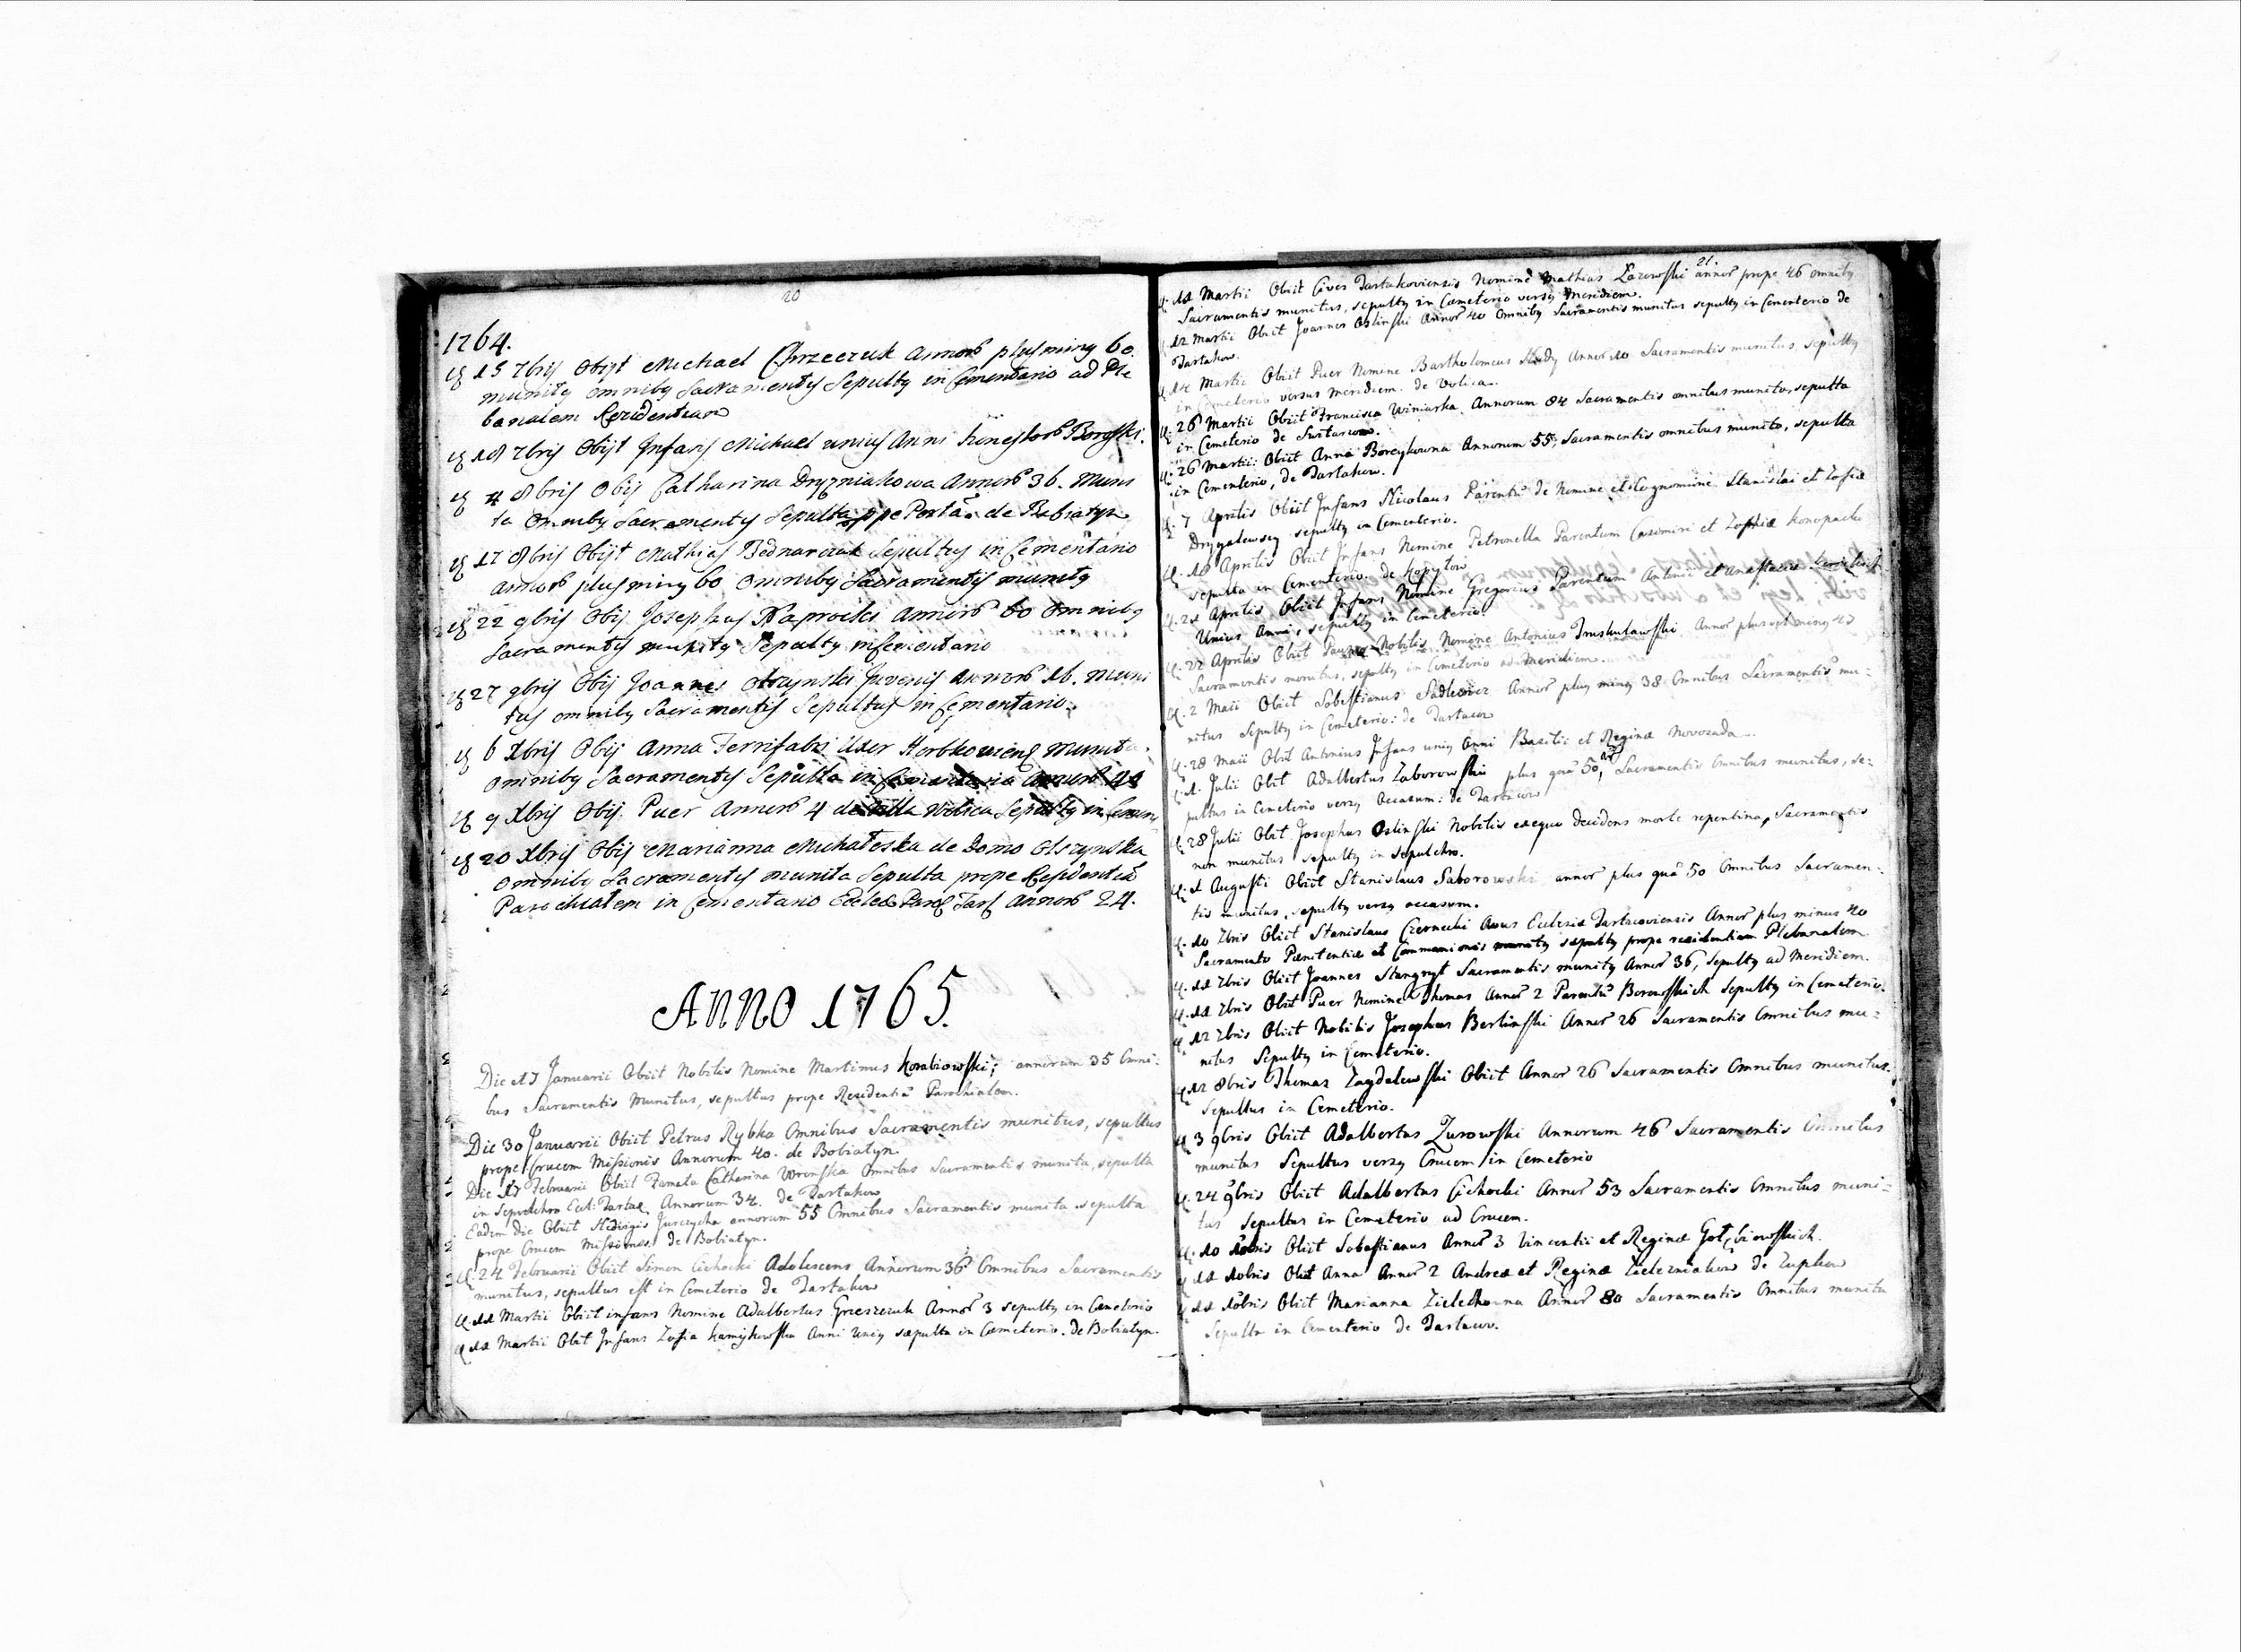 20
1764.
15 7bris Obijt Michael Chrzeczuk annorũ plus minus 60.
munitus omnibus Sacramentis Sepultus in Cementario ad Ple
banalem Rezidentiam
18 7bris Obijt Infans Michael unius Anni
4 8bris Obij Catharina Dryzniakowa Annorũ 36. Muni
ta omnibus Sacramentis Sepulta ppe Portã de Babiatyn
17 8bris Obijt Mathias Bednarczuk Sepultus in Cementario
annorũ plus minus 60 omnibus Sacramentis munitus
22 9bris Obij Josephus Naprocki annorũ 60 omnibus
Sacramentis munitus Sepultus in Cementario
27 9bris Obij Joannes Olszynski Juvenis annorũ 16. muni
tus omnibus Sacramentis Sepultus in Cementario.
6 Xbris Obij Anna Ferrifabri Uxor munita
omnibus Sacramentis Sepulta in
9 Xbris Obij Puer Annorũ 4 de Villa Wolica Sepultus in
20 Xbris Obij Marianna Michałeska de Domo Olszynska
omnibus Sacramentis munita Sepulta prope Residentiã
Parochialem in Cementario annorũ 24.
ANNO 1765.
Die 17 Januarii Obiit Nobilis Nomine Martinus Korabiowski; annorum 35 Omni-
bus Sacramentis Munitus, sepultus prope Residentiã Parochialem.
Die 30 Januarii Obiit Petrus Rybka Omnibus Sacramentis munitus, sepultus
prope Crucem Missionis Annorum 40. de Bobiatyn
Die 17 Februarii Obiit Famata Catharina Wronska Omnibus Sacramentis munita, sepulta
in Sepulchro Annorum 34. de Tartakow
Eadem die Obiit Hedvigis Jurczycha annorum 55 Omnibus Sacramentis munita sepulta
prope Crucem Missiones de Bobiatyn.
24 Februarii Obiit Simon Cichocki Adolescens Annorum 36 Omnibus Sacramentis
munitus, sepultus est in Cemeterio de Tartakow
11 Martii Obiit infans Nomine Adalbertus Grzeszczuk Annorũ 3 sepultus in Cemeterio
11 Martii Obiit Infans Zofia Anni unius sepulta in Cæmeterio. de Bobiatyn.
21.
11 Martii Obiit Cives Tartakoviensis Nomine Mathias Lazowski annorũ prope 46 omnibus
Sacramentis munitus, sepultus in Cæmeterio versus Meridiem.
12 Martii Obiit Joannes Oslinski Annorũ 40 Omnibus Sacramentis munitus sepultus in Cementerio de
Tartakow.
14 Martii Obiit Puer Nomine Bartholomeus Annorũ 10 Sacramentis munitus, sepultus
in Cemeterio versus meridiem. de Volica.
26 Martii Obiit Francisca Winiarka Annorum 84 Sacramentis omnibus munita, sepulta
in Cemeterio de
26 Martii: Obiit Anna Annorum 55, Sacramentis omnibus munita, sepulta
in Cementerio, de Tartakow.
7 Aprilis Obiit Infans Nicolaus Parentũ de Nomine et Cognomine Stanislai et Zofiæ
sepultus in Cementerio.
18 Aprilis Obiit Infans Nomine Petronella Parentum Casimiri et Zophiæ Konopacki
sepulta in Cementerio. de Kopytow
21 Aprilis Obiit Infans Nomine Gregorius Parentum Antonii et Anastasiæ
Unius Anni, sepultus in Cemeterio.
22 Aprilis Obiit Nobilis Nomine Antonius Annorũ plus vel minus 47
Sacramentis munitus, sepultus in Cemeterio ad Meridiem.
2 Maii Obiit Sebastianus Sadkowicz Annorũ plus minus 38 Omnibus Sacramentis mu-
nitus Sepultus in Cemeterio: de Tartacow
28 Maii Obiit Antonius Infans unius Anni Basilii et Reginæ Novosada
1. Julii Obiit Adalbertus Zaborowski plus quã 50, Sacramentis Omnibus munitus, se-
pultus in Cemeterio versus Occasum: de Tartacow
28 Julii Obiit Josephus Oslinski Nobilis ex equo decidens morte repentina, Sacramentis
non munitus sepultus in Sepulchro.
1 Augusti Obiit Stanislaus Saborowski annorũ plus quã 50 Omnibus Sacramen-
tis munitus, sepultus versus occasum.
10 7bris Obiit Stanislaus Czernecki Ecclesiæ Tartacoviensis Annorũ plus minus 40
Sacramento Pœnitentiæ et Communionis munitus sepultus prope residentiam Plebanalem
11 7bris Obiit Joannes Stangryt Sacramentis munitus Annorũ 36, Sepultus ad Meridiem.
11 7bris Obiit Puer Nomine Thomas Annorũ 2 Parentũ Borowskich Sepultus in Cemeterio.
12 7bris Obiit Nobilis Josephus Berlinski Annorũ 26 Sacramentis Omnibus mu-
nitus Sepultus in Cemeterio.
12 8bris Thomas Zagdalewski Obiit Annorũ 26 Sacramentis Omnibus munitus.
Sepultus in Cemeterio.
3 9bris Obiit Adalbertus Zurowski Annorum 46 Sacramentis Omnibus
munitus Sepultus versus Crucem in Cemeterio
24 9bris Obiit Adalbertus Cichocki Annorũ 53 Sacramentis Omnibus muni-
tus Sepultus in Cemeterio ad Crucem.
10 Obiit Sebastianus Annorũ 3 Vincentii et Reginæ Gołębiowskich.
11 10bris Obiit Anna Annorũ 2 Andreæ et Reginæ de
11 10bris Obiit Marianna Annorũ 80 Sacramentis Omnibus munita
Sepulta in Cementerio de Tartacow.